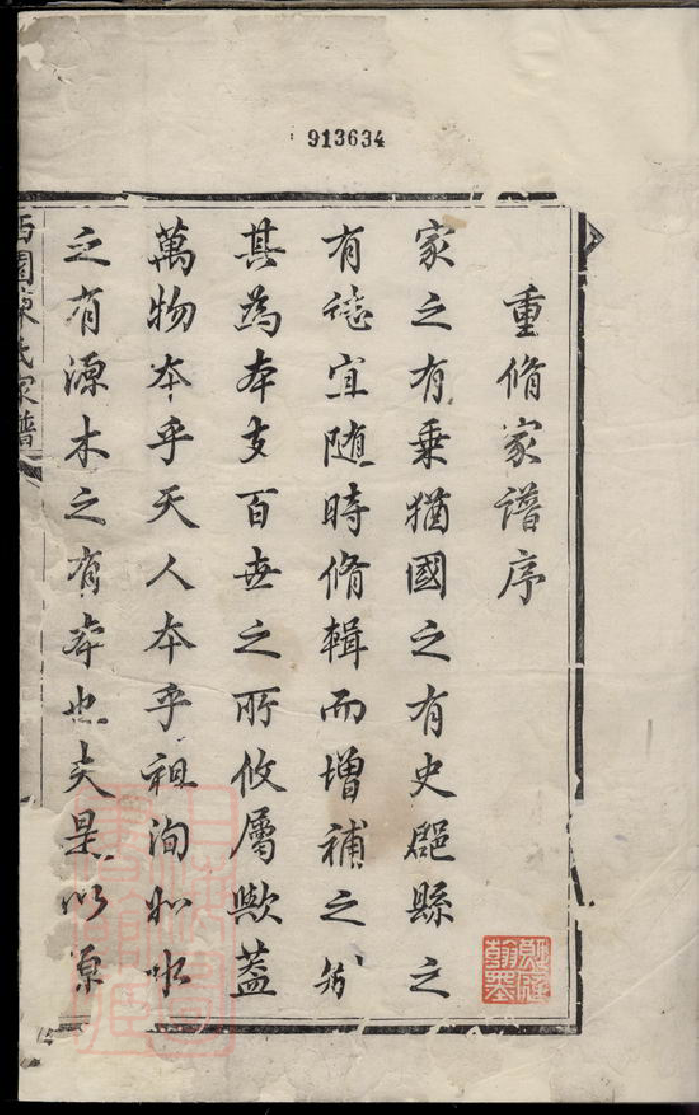 913634
重脩家譜序
家之有乗猶國之有史郡縣之
有誌宜随時脩輯而增補之矧
其為本支百世之所攸屬歟蓋
萬物本乎天人本乎祖洵如水
之有源木之有本也夫是以源
西園陳氏家譜